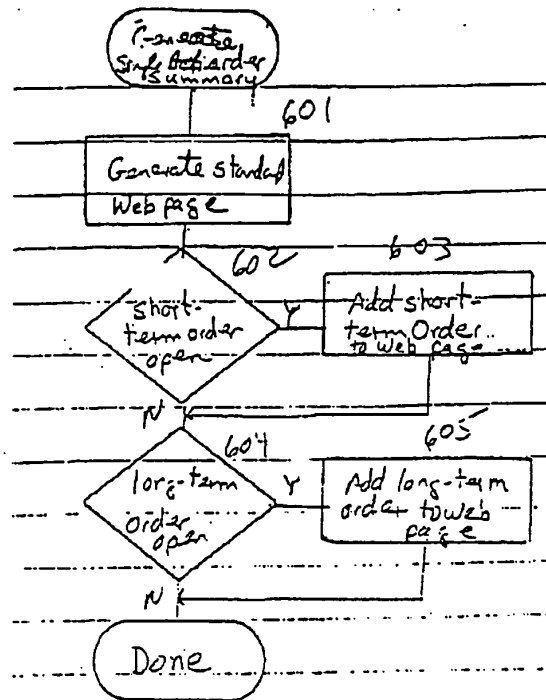 Generate
Single Action order
Summary
601
Generate Standard
Web page
602
603
short-
term order
open
Y
Add short-
term Order
to Web page
N
604
605
long-term
order
open
Y
Add long-term
order to Web
page
N
Done